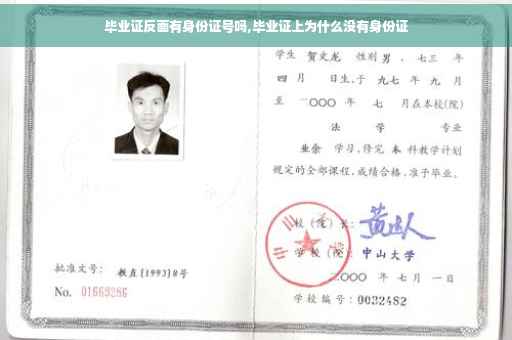 毕业证反面有身份证号吗,毕业证上为什么没有身份证
学生 贺文龙 性别 男 、七三 年
四 月 日生,于 九七 年 九 月
至 二〇〇〇 年 七 月在本校(院)
法 学 专业
业余 学习,修完 本 科教学计划
规定的全部课程,成绩合格,准予毕业。
校(院)长:
学校(院): 中山大学
二〇〇〇 年 七 月 一 日
学校编号: 0032482
批准文号: 教直(1993)8号
No. 01669286